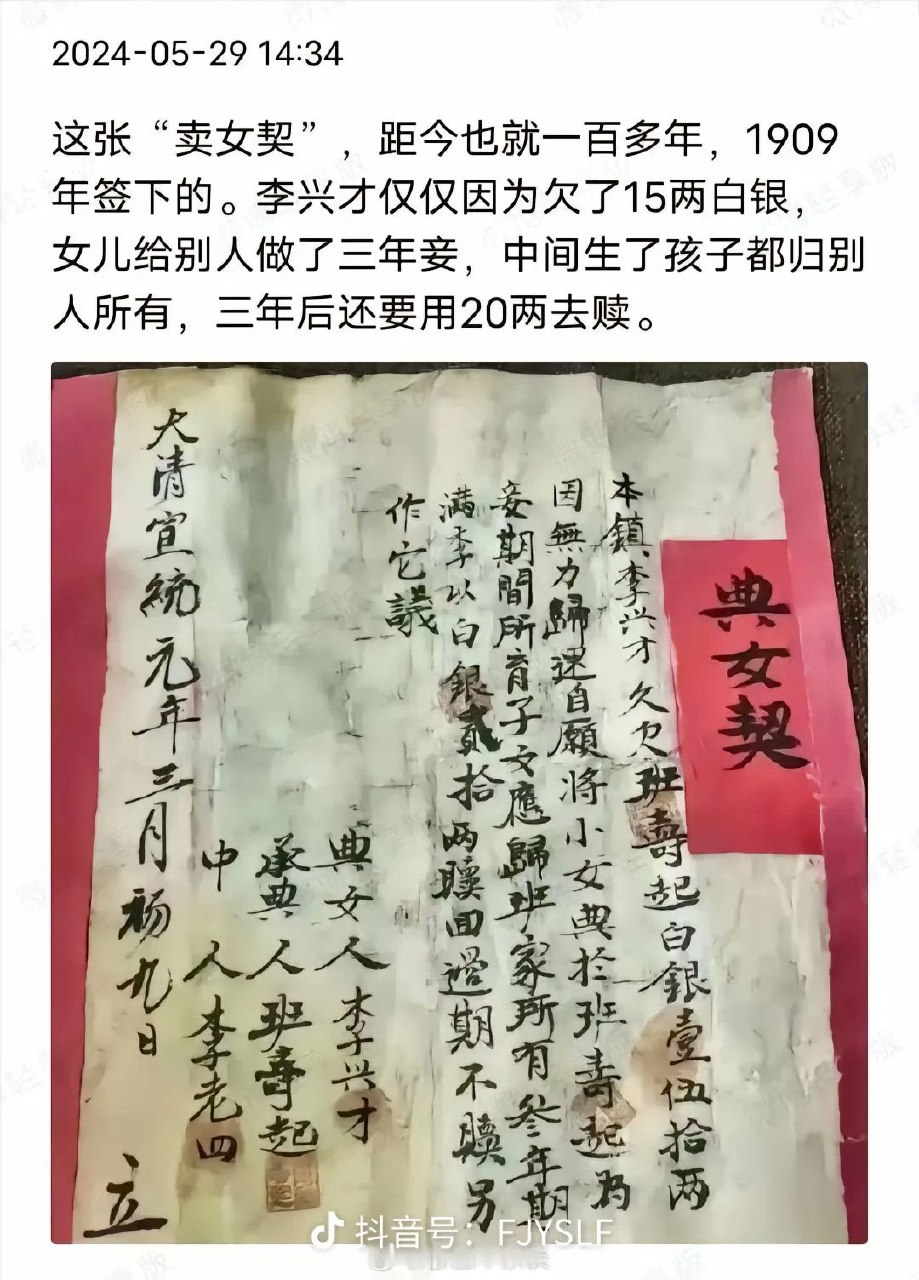 2024-05-29 14:34
这张“卖女契”，距今也就一百多年，1909
年签下的。李兴才仅仅因为欠了15两白银，
女儿给别人做了三年妾，中间生了孩子都归别
人所有，三年后还要用20两去赎。
典女契
本鎮李兴才欠欠班壽起白銀壹伍拾两
因無力歸还自願将小女典於班壽起为
妾期間所育子女應歸班家所有叁年期
满李以白銀貳拾两贖回過期不贖另
作它議
典女人李兴才
承典人班壽起
中人李老四
大清宣統元年三月初九日 立
抖音号：FJYSLF